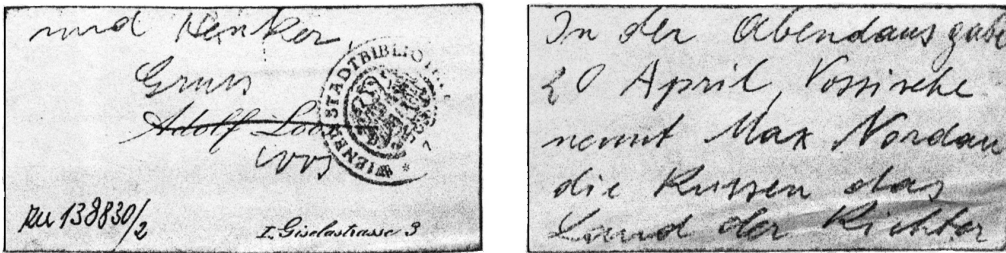 und Henker,
Gruss
Adolf Loos
Loos
WIENER STADTBIBLIOTHEK
zu 138830/2
I. Giselastrasse 3
In der Abendausgabe
20 April, Vossische
nennt Max Nordau
die Russen das
Land der Richter